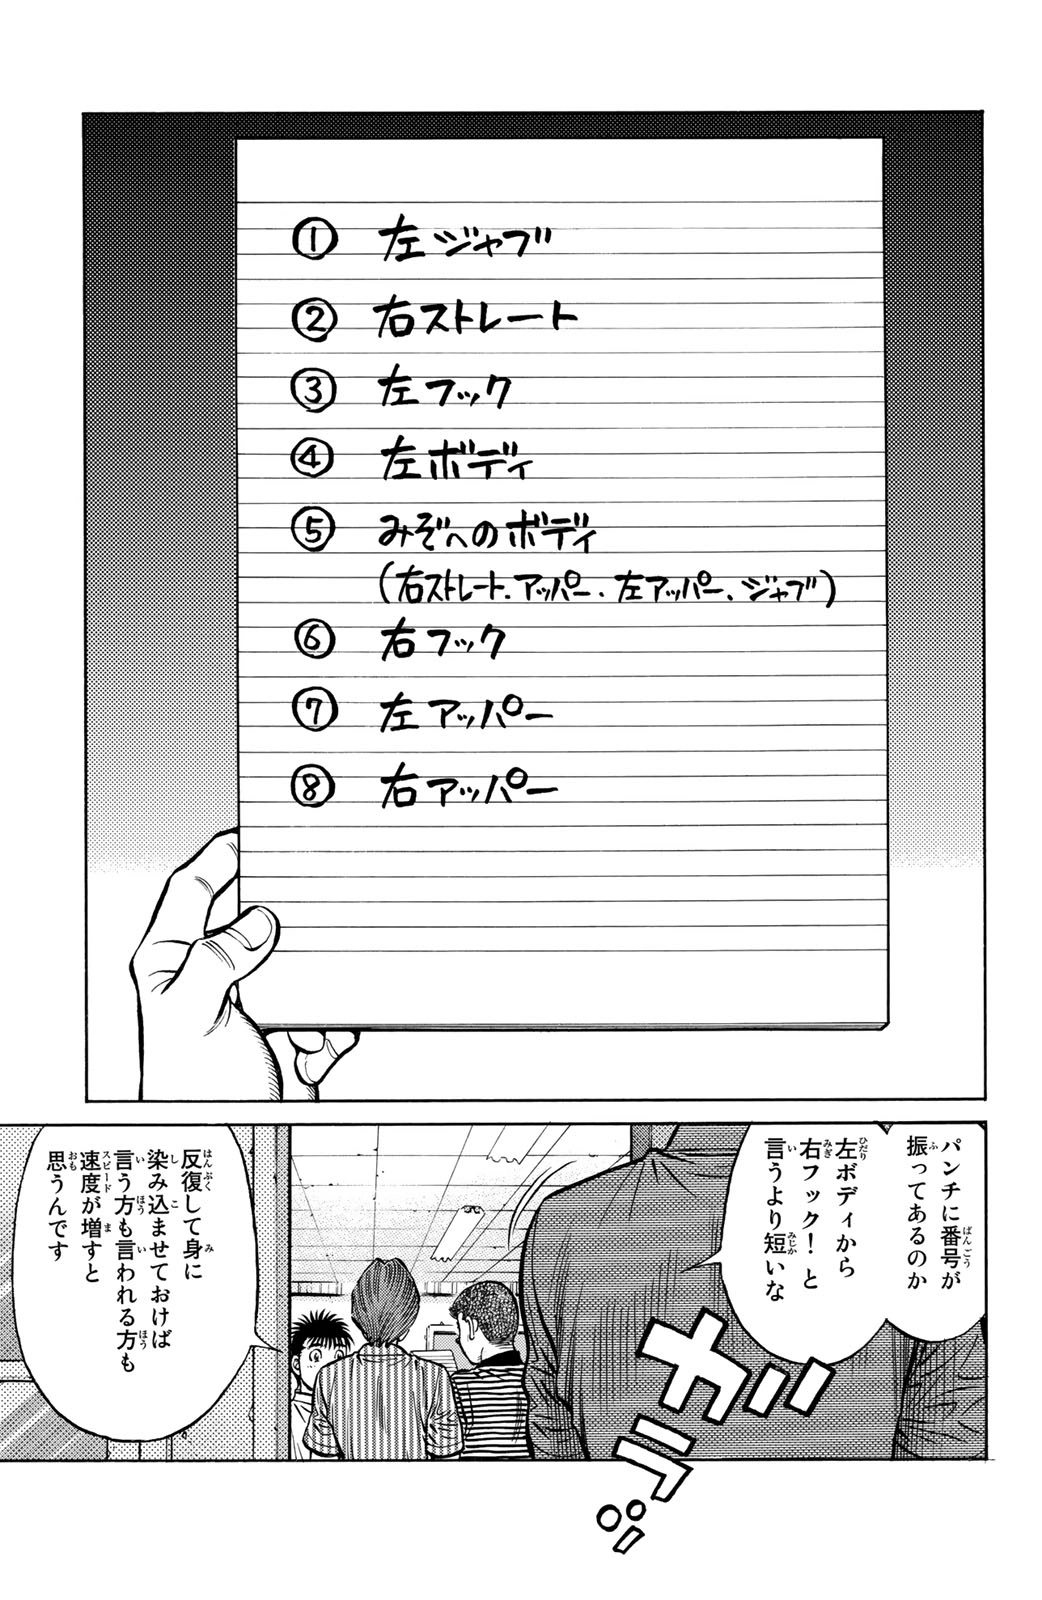 ① 左ジャブ
② 右ストレート
③ 左フック
④ 左ボディ
⑤ みぞへのボディ
(右ストレート.アッパー.左アッパー、ジャブ)
⑥ 右フック
⑦ 左アッパー
⑧ 右アッパー
パンチに番号が
振ってあるのか
左ボディから
右フック！と
言うより短いな
ガラッ
反復して身に
染み込ませておけば
言う方も言われる方も
速度が増すと
思うんです